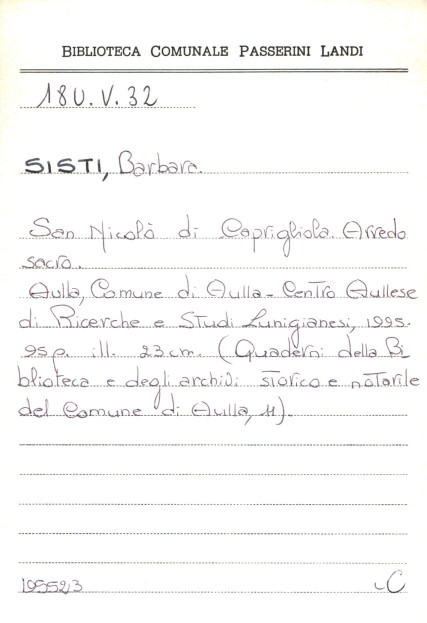 BIBLIOTECA COMUNALE PASSERINI LANDI
18U.V.32
SISTI, Barbara.
San Nicolò di Caprigliola. Arredo
sacro.
Aulla, Comune di Aulla - Centro Aullese
di Ricerche e Studi Lunigianesi, 1995.
95p. ill. 23cm. (Quaderni della Bi_
blioteca e degli archivi storico e notarile
del Comune di Aulla, 11).